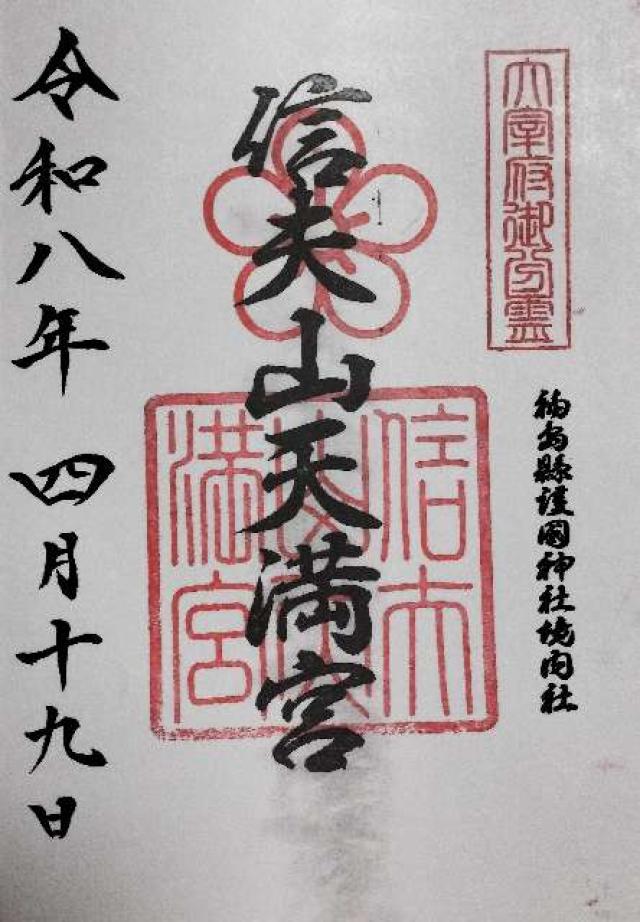 太宰府御分霊
福島縣護國神社境内社
信夫山天満宮
信夫山天満宮
令和八年 四月十九日